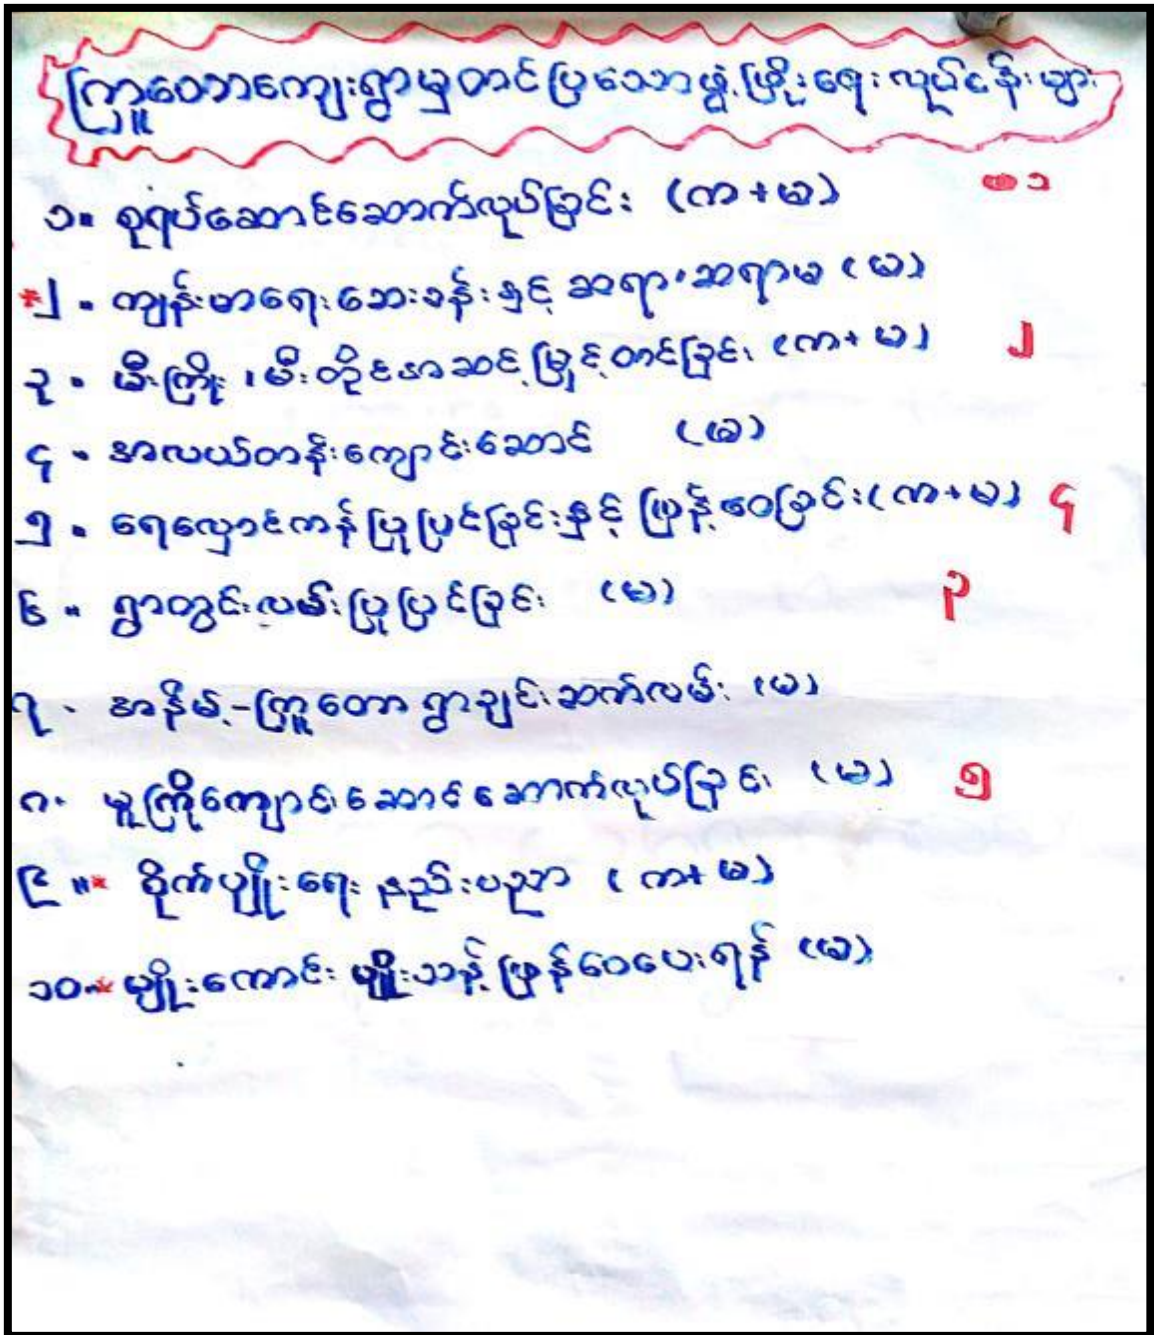 ကြူတောကျေးရွာမှတင်ပြသောဖွံ့ဖြိုးရေးလုပ်ငန်းများ
၁။ စုရပ်ဆောင်ဆောက်လုပ်ခြင်း (က+မ) ၁
*၂။ ကျန်းမာရေးဆေးခန်းနှင့် ဆရာ၊ဆရာမ (မ)
၃။ မီးကြိုး ၊မီးတိုင်အဆင့်မြှင့်တင်ခြင်း (က+မ) ၂
၄။ အလယ်တန်းကျောင်းဆောင် (မ)
၅။ ရေလှောင်ကန်ပြုပြင်ခြင်းနှင့် ဖြန့်ဝေခြင်း (က+မ) ၄
၆။ ရွာတွင်းလမ်းပြုပြင်ခြင်း (မ) ၃
၇။ အနိမ့်-ကြူတော ရွာချင်းဆက်လမ်း (မ)
၈။ မူကြိုကျောင်းဆောင်ဆောက်လုပ်ခြင်း (မ) ၅
၉။* စိုက်ပျိုးရေး နည်းပညာ (က+မ)
၁၀။* မျိုးကောင်း မျိုးသန့် ဖြန့်ဝေပေးရန် (မ)